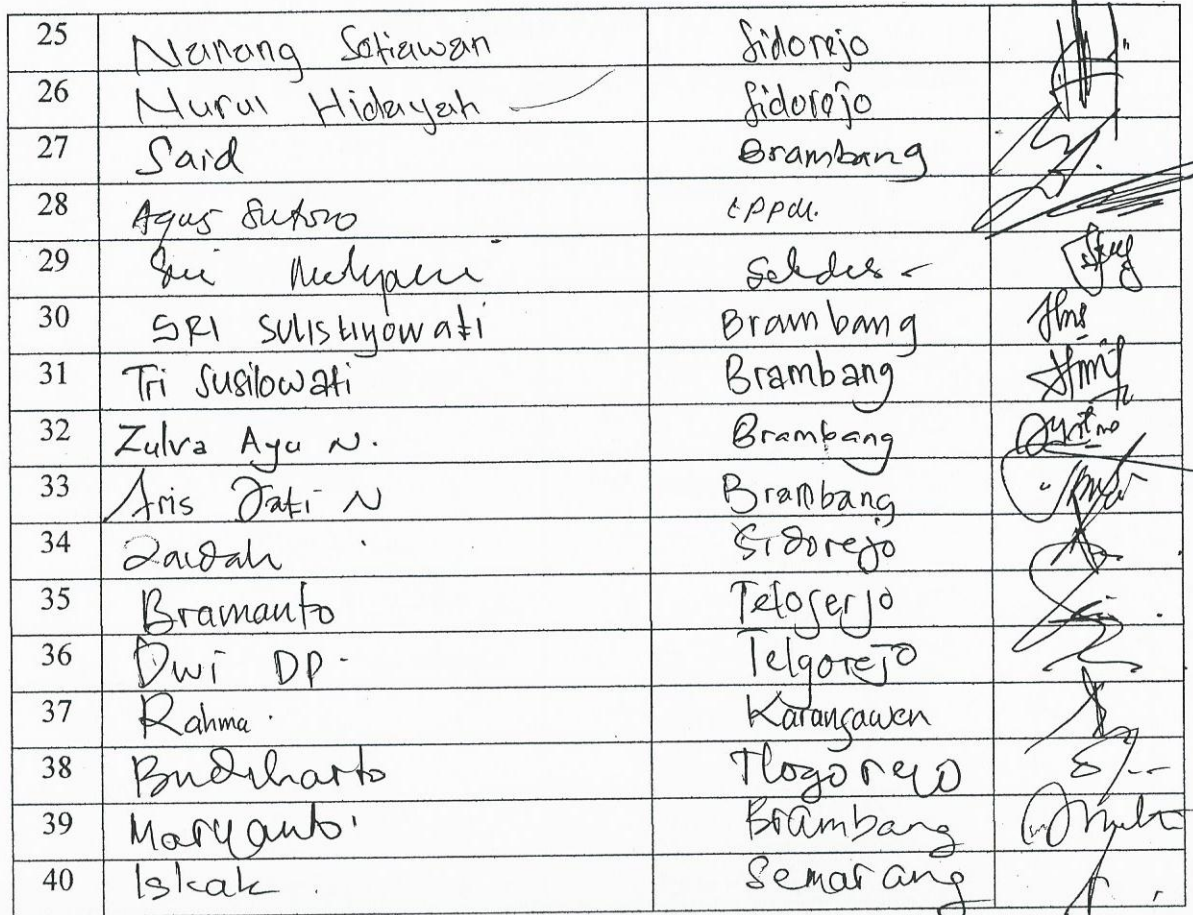 25 Nanang Setiawan Sidorejo
26 Nurul Hidayah Sidorejo
27 Said Brambang
28 Agus Sutoro
29 Sri Mulyani Sekdes
30 SRI Sulistiyowati Brambang
31 Tri Susilowati Brambang
32 Zulva Ayu N. Brambang
33 Aris Jati N Brambang
34 Zaidah Sidorejo
35 Bramanto
36 Dwi DP. Telgorejo
37 Rahma. Karangawen
38 Budiharto Tlogorejo
39 Maryanto Brambang
40 Iskak Semarang